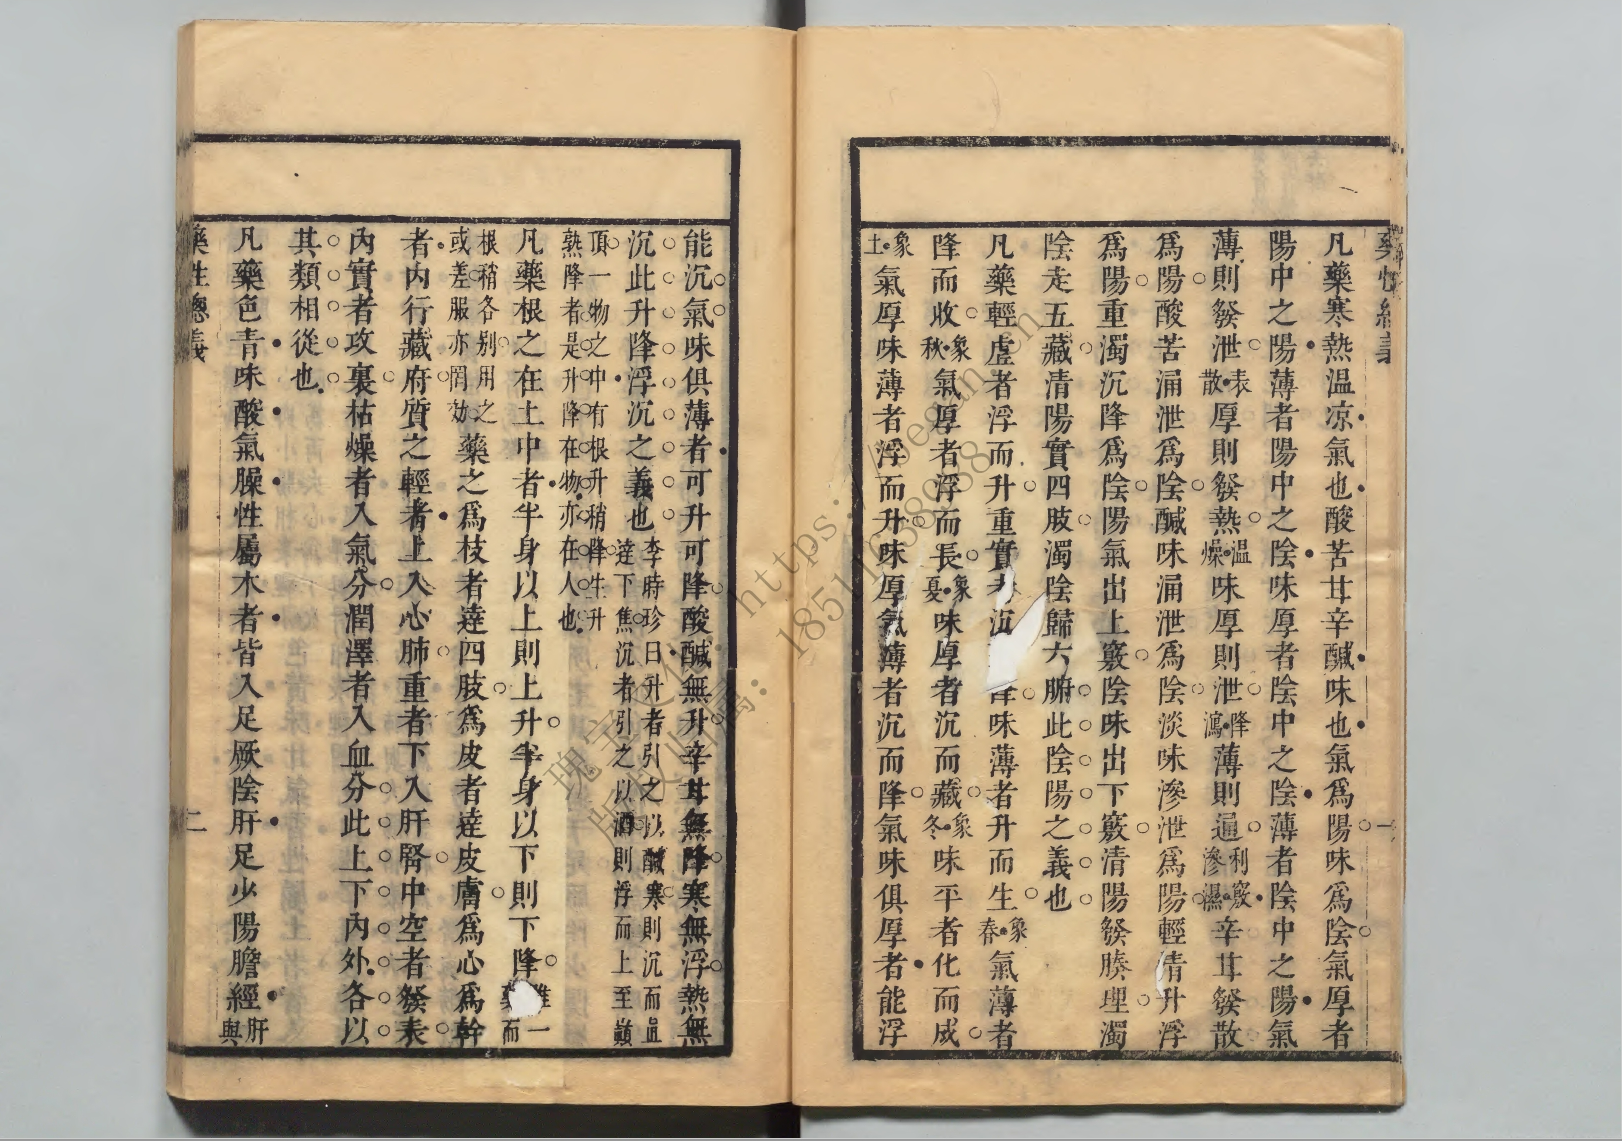 藥性總義
一
凡藥寒熱温凉氣也酸苦甘辛鹹味也氣爲陽味爲陰氣厚者
陽中之陽薄者陽中之陰味厚者陰中之陰薄者陰中之陽氣
薄則發泄表散厚則發熱温燥味厚則泄降瀉薄則通利竅滲濕辛甘發散
爲陽酸苦涌泄爲陰鹹味涌泄爲陰淡味滲泄爲陽輕清升浮
爲陽重濁沉降爲陰陽氣出上竅陰味出下竅清陽發腠理濁
陰走五藏清陽實四肢濁陰歸六腑此陰陽之義也
凡藥輕虛者浮而升重實者沉降味薄者升而生象春氣薄者
降而收象秋氣厚者浮而長象夏味厚者沉而藏象冬味平者化而成
象土氣厚味薄者浮而升味厚氣薄者沉而降氣味俱厚者能浮
能沉氣味俱薄者可升可降酸鹹無升辛甘無降寒無浮熱無
沉此升降浮沉之義也李時珍曰升者引之以鹹寒則沉而直達下焦沉者引之以酒則浮而上至巔
頂一物之中有根升稍降生升熟降者是升降在物亦在人也
凡藥根之在土中者半身以上則上升半身以下則下降一藥而
根稍各别用之或差服亦罔效藥之爲枝者達四肢爲皮者達皮膚爲心爲幹
者内行藏府質之輕者上入心肺重者下入肝腎中空者發表
内實者攻裏枯燥者入氣分潤澤者入血分此上下内外各以
其類相從也
凡藥色青味酸氣臊性屬木者皆入足厥陰肝足少陽膽經肝與
藥性總義
二
瑰宝古代: https://segan.cn
18511138938